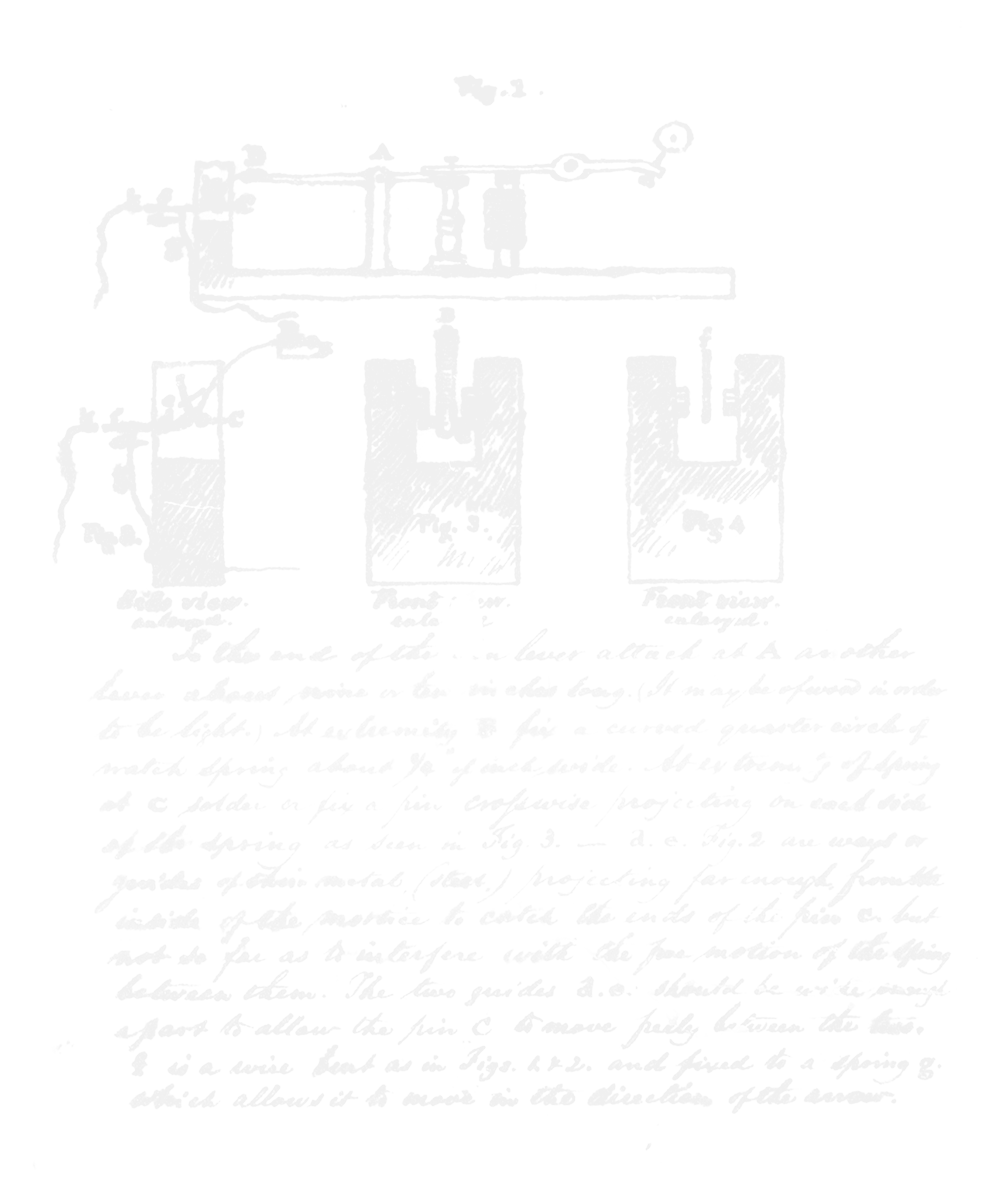 Fig. 1.
B
A
k f c
g
B
f
k f c
Fig 2. Fig. 3. Fig 4
Side view. Front view. Front view.
enlarged. enlarged.
To the end of the lever attach at A another
lever about nine or ten inches long. (It may be of wood in order
to be light.) At extremity B fix a curved quarter circle of
watch spring about 1/4 of inch wide. At extremity of spring
at c solder or fix a pin crosswise projecting on each side
of the spring as seen in Fig 3. — d. e. Fig. 2 are ways or
guides of thin metal (steel) projecting far enough from the
inside of the mortice to catch the ends of the pin c. but
not so far as to interfere with the free motion of the spring
between them. The two guides d. e. should be wide enough
apart to allow the pin C to move freely between the two.
f is a wire bent as in Figs. 1 & 2. and fixed to a spring g.
which allows it to move in the direction of the arrow.